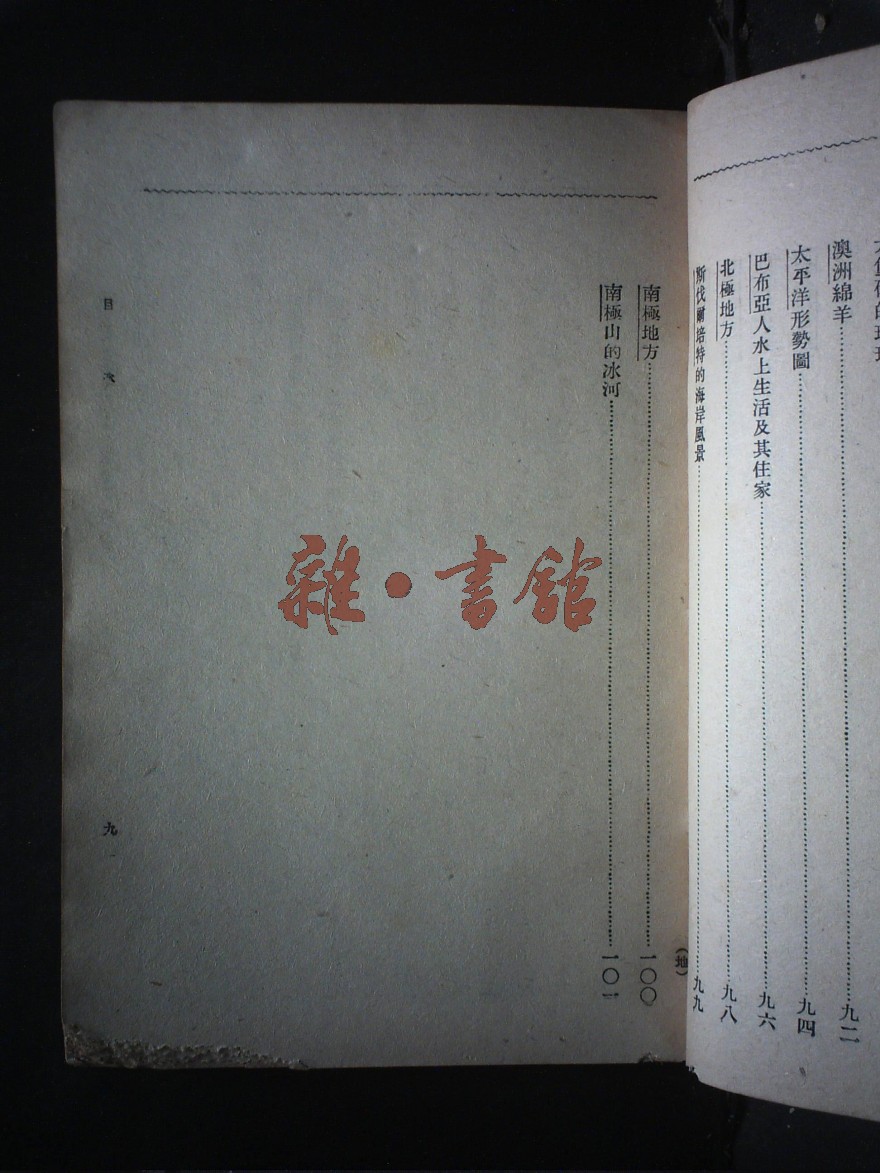 澳洲綿羊……九二
太平洋形勢圖……九四
巴布亞人水上生活及其住家……九六
北極地方……九八
斯伐爾培特的海岸風景……九九
(地)
南極地方……一〇〇
南極山的冰河……一〇一
目次
九
雜·書館